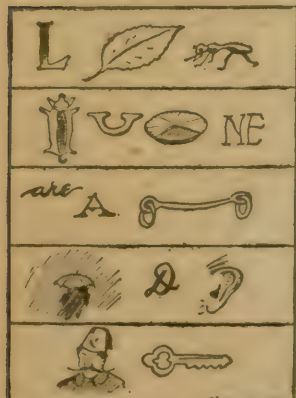 L
U NE
are A
D